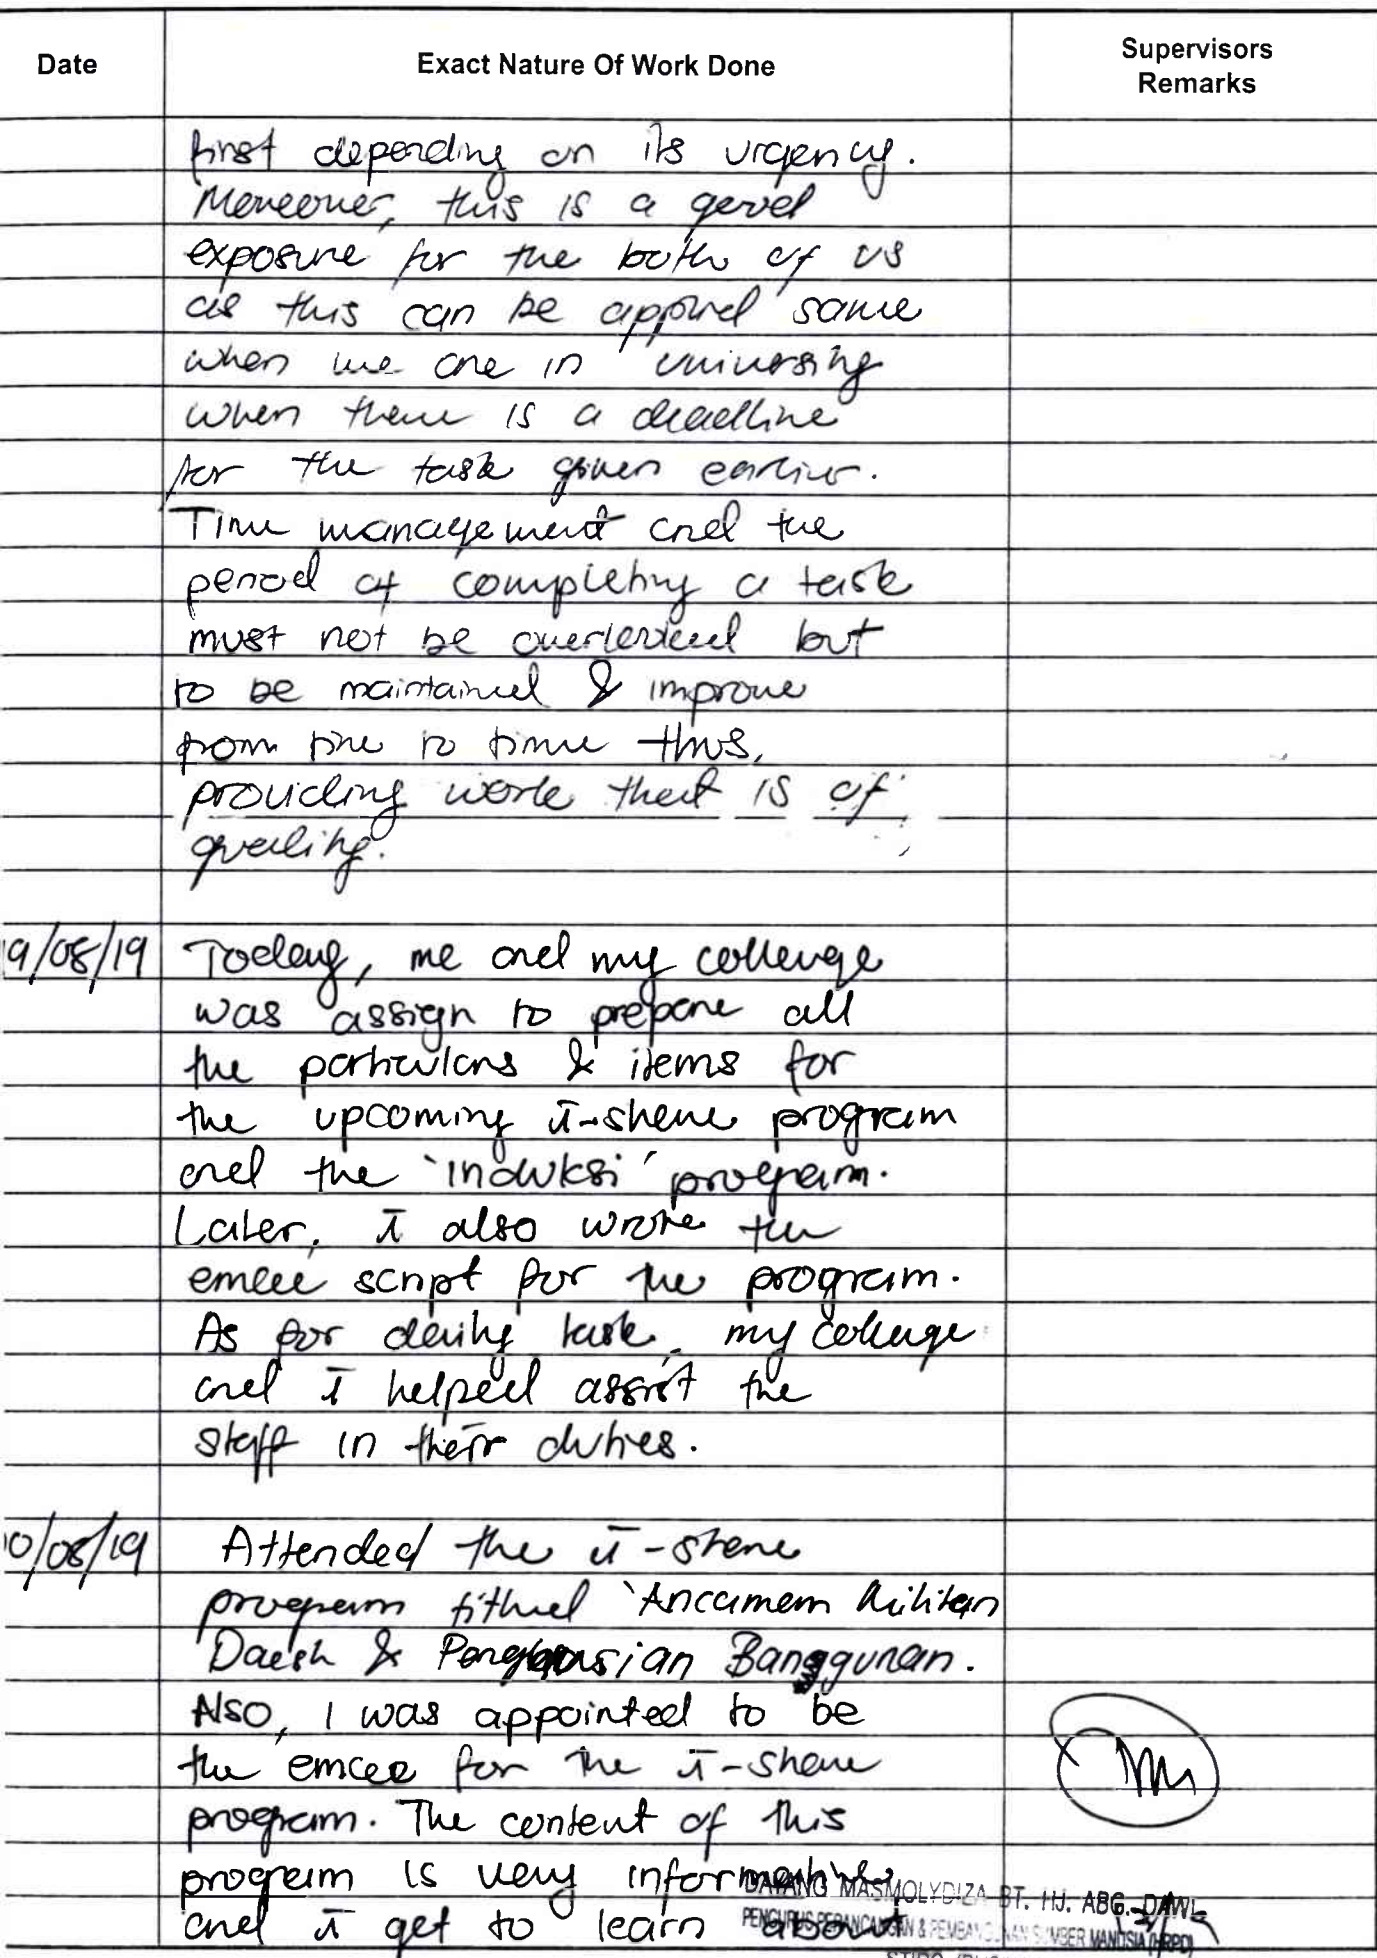 Date Exact Nature Of Work Done Supervisors Remarks
first depending on its urgency.
Moreover, this is a good
exposure for the both of us
as this can be applied same
when we are in university
when there is a deadline
for the task given earlier.
Time management and the
period of completing a task
must not be overlooked but
to be maintained & improve
from time to time thus,
providing work that is of
quality.
9/08/19 Today, me and my colleuge
was assign to prepare all
the particulars & items for
the upcoming I-share program
and the 'induksi' program.
Later, I also wrote the
emcee script for the program.
As for daily task, my colleuge
and I helped assist the
staff in their duties.
0/08/19 Attended the I-share
program titled 'Ancaman Militan
Daesh & Banggunan.
Also, I was appointed to be
the emcee for the I-share
program. The content of this
program is very informative
and I get to learn about
DAYANG MASMOLYDIZA BT. HJ. ABG.
PENGURUS PERANCANGAN & PEMBANGUNAN SUMBER MANUSIA (HRPD)